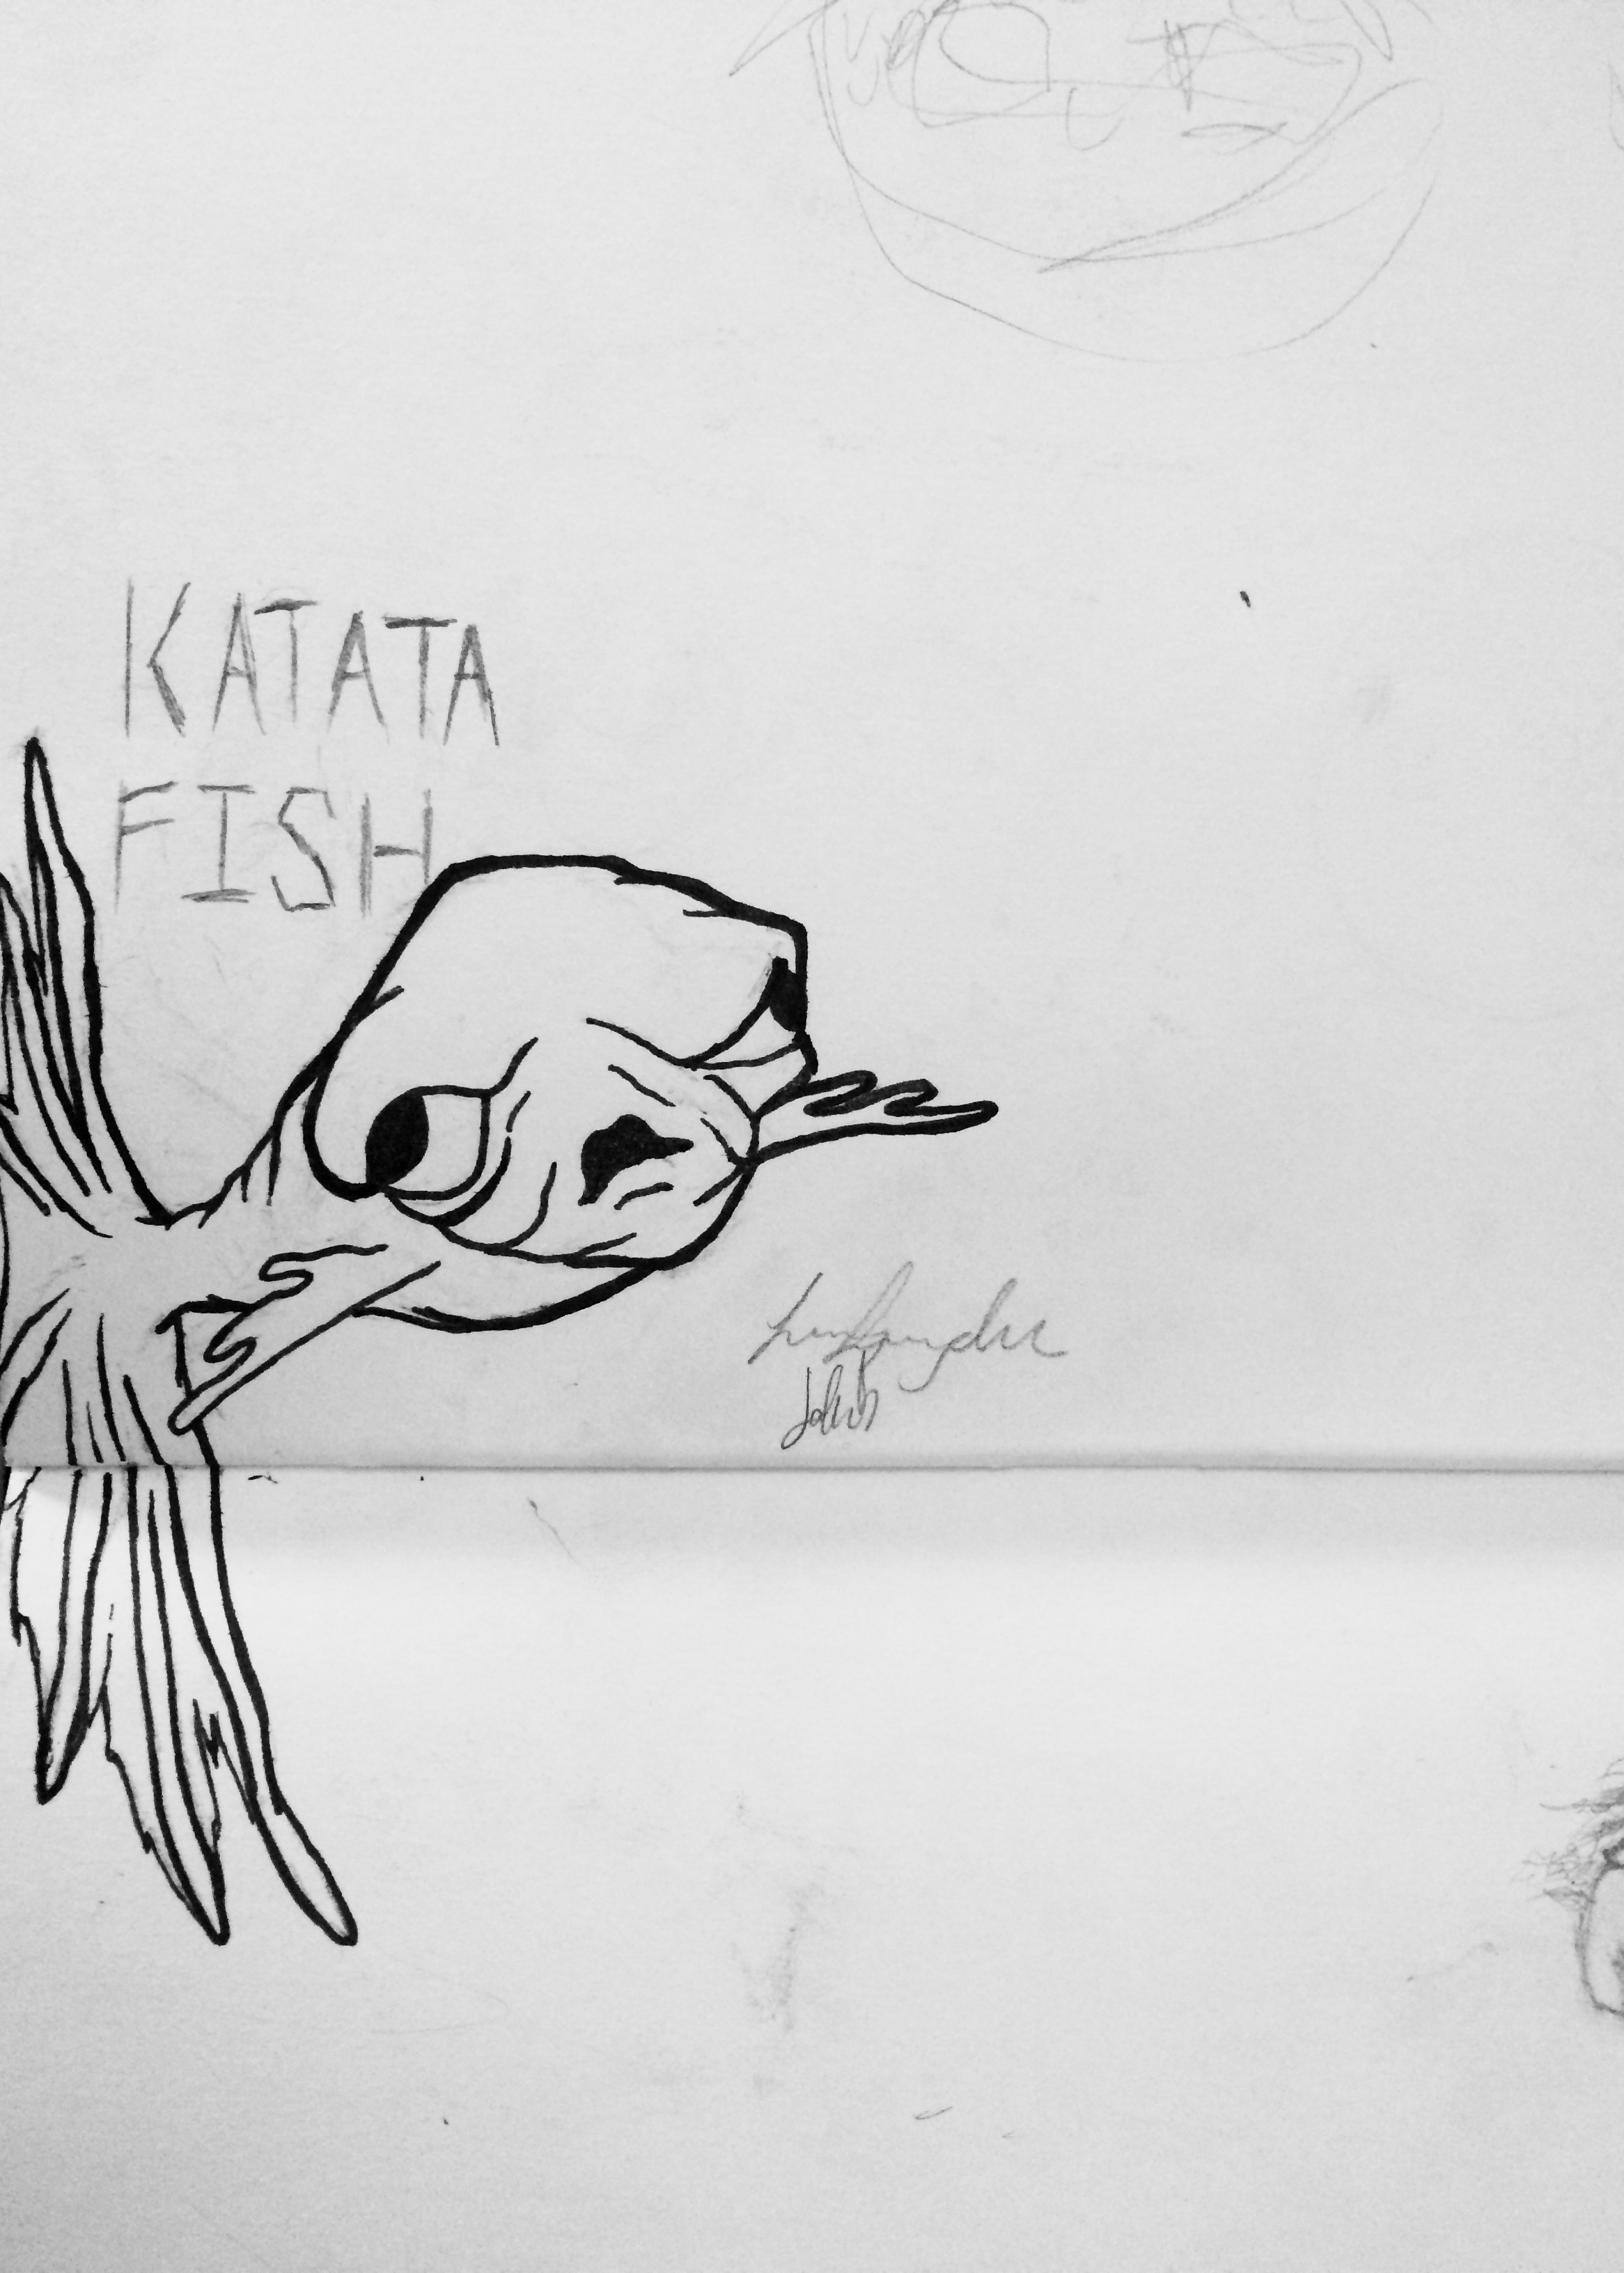 KATATA
FISH